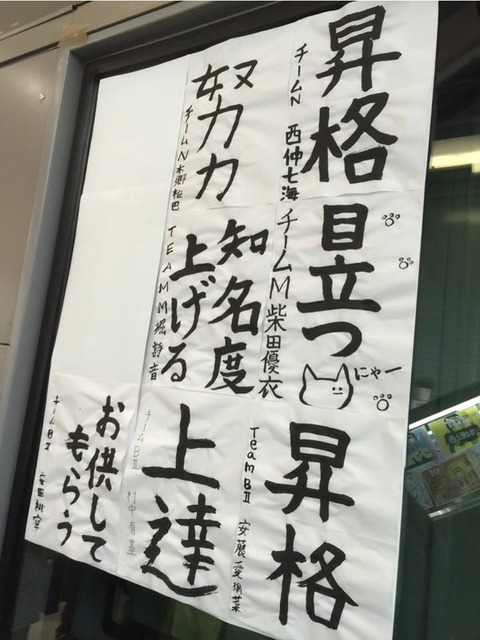 昇格
チームN 西仲七海
努力
チームN 本郷柚巴
目立つ
にゃー
チームM 柴田優衣
知名度
上げる
TEAM M 堀詩音
昇格
Team BII 安藤愛璃菜
上達
チームBII 村中有基
お供して
もらう
チームBII 安田桃寧